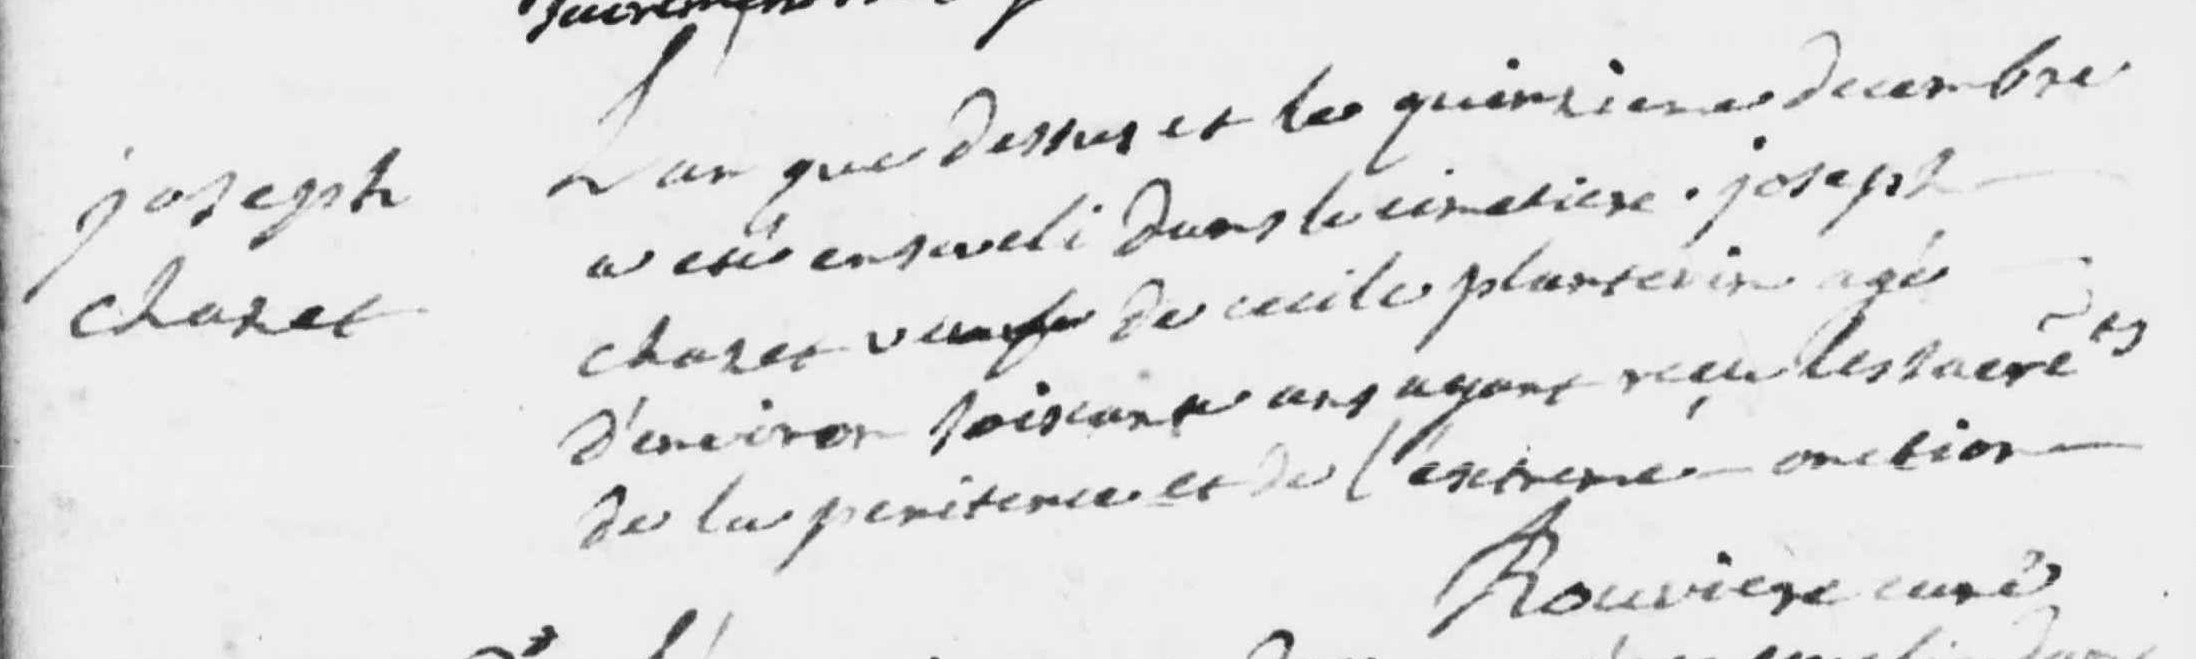 joseph
chazet
L'an que dessus et le quinzieme decembre
a eté enseveli dans le cimetiere . joseph
chazet veuf de cecile plantevin agé
d'environ soixante ans ayant reçu les sacrẽts
de la penitence et de l'extreme onction
Rouviere curé